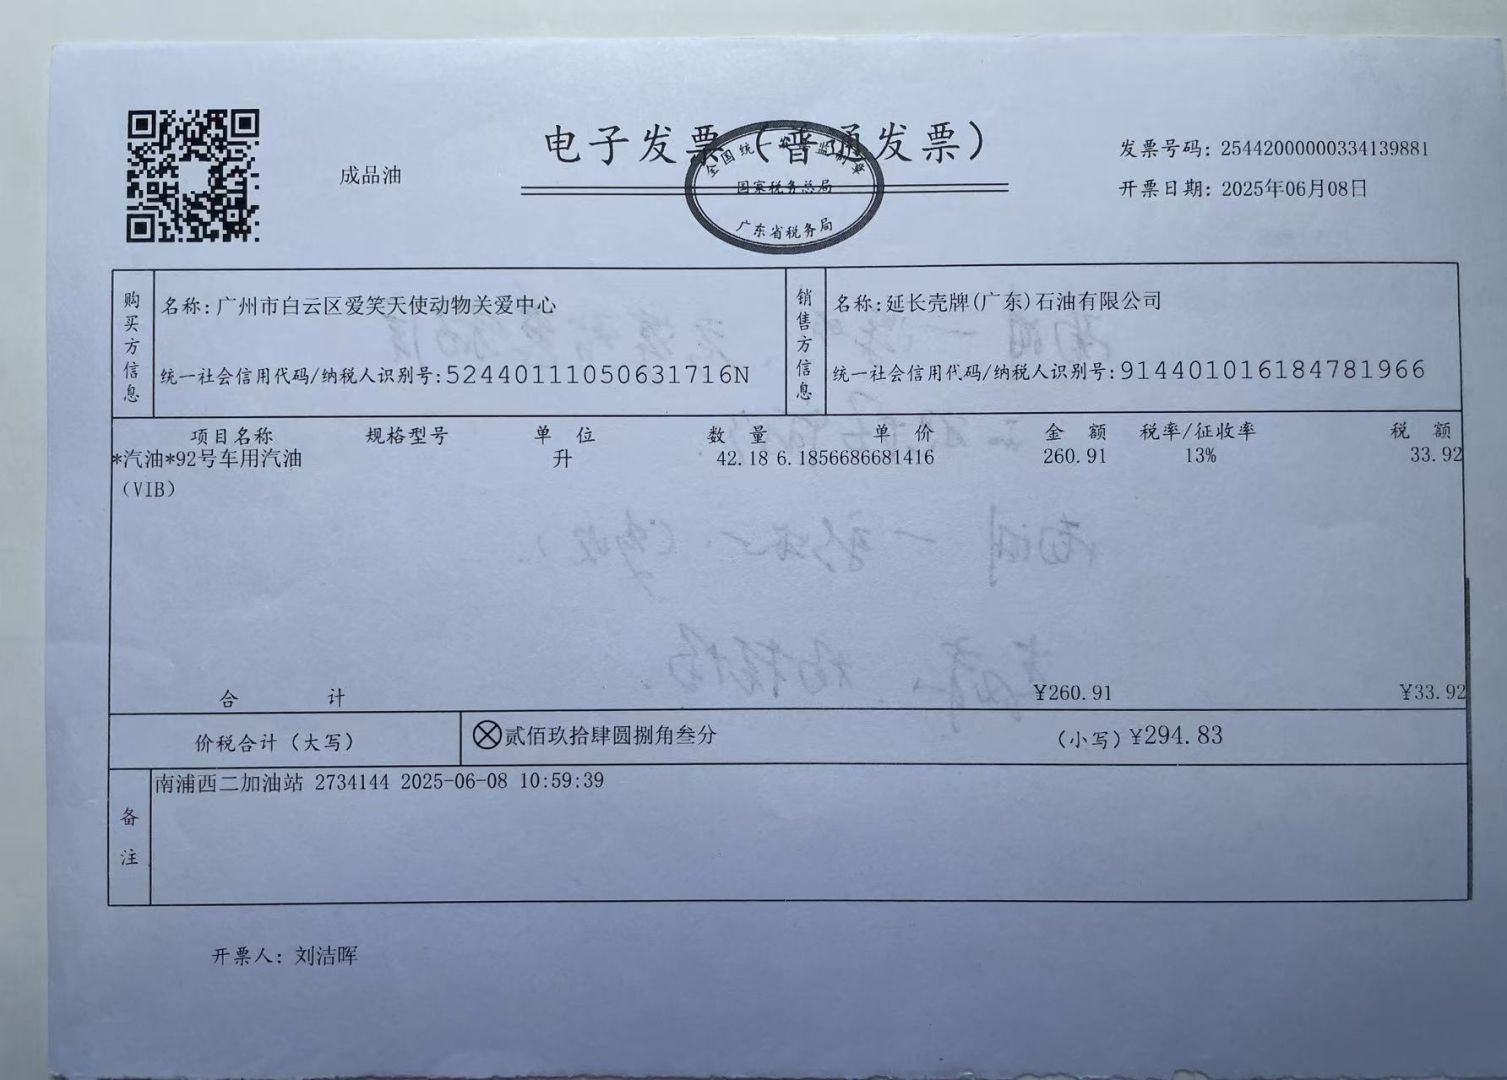 电子发票（普通发票）
成品油
全国统一发票监制章
国家税务总局
广东省税务局
发票号码：25442000000334139881
开票日期：2025年06月08日
购买方信息
名称：广州市白云区爱笑天使动物关爱中心
统一社会信用代码/纳税人识别号：52440111050631716N
销售方信息
名称：延长壳牌(广东)石油有限公司
统一社会信用代码/纳税人识别号：914401016184781966
项目名称 规格型号 单 位 数 量 单 价 金 额 税率/征收率 税 额
*汽油*92号车用汽油 升 42.18 6.1856686681416 260.91 13% 33.92
（VIB）
合 计 ¥260.91 ¥33.92
价税合计（大写） ⊗贰佰玖拾肆圆捌角叁分 （小写）¥294.83
备注
南浦西二加油站 2734144 2025-06-08 10:59:39
开票人：刘洁晖